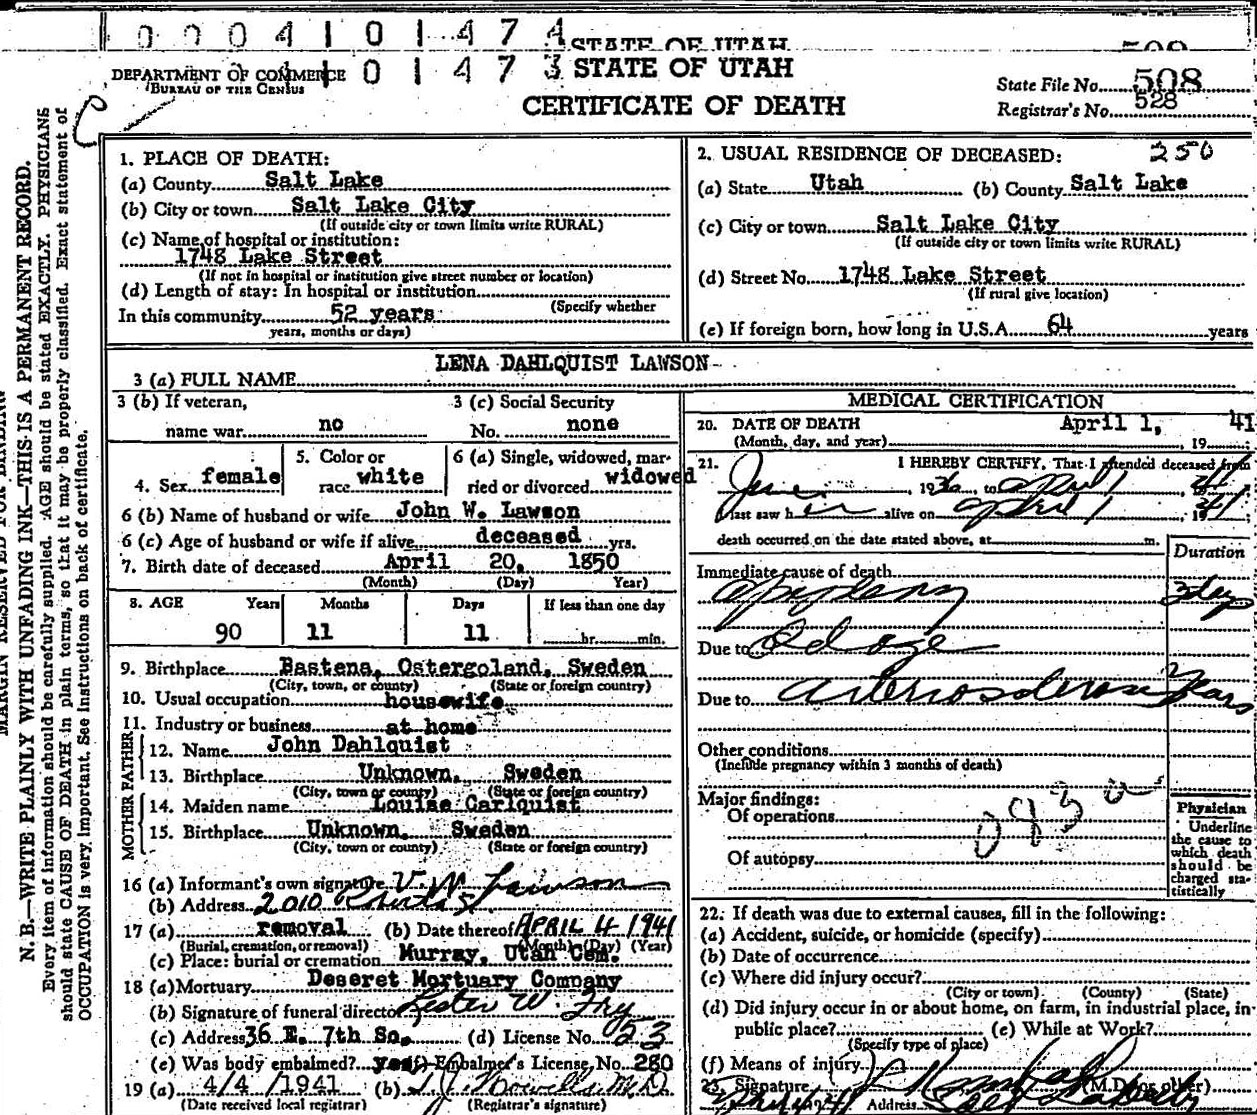 0004101474
STATE OF UTAH
508
DEPARTMENT OF COMMERCE
BUREAU OF THE CENSUS
04101473
STATE OF UTAH
CERTIFICATE OF DEATH
State File No. 508
Registrar's No. 528
MARGIN RESERVED FOR BINDING
N. B.—WRITE PLAINLY WITH UNFADING INK—THIS IS A PERMANENT RECORD.
Every item of information should be carefully supplied. AGE should be stated EXACTLY. PHYSICIANS
should state CAUSE OF DEATH in plain terms, so that it may be properly classified. Exact statement of
OCCUPATION is very important. See instructions on back of certificate.
1. PLACE OF DEATH:
(a) County Salt Lake
(b) City or town Salt Lake City
(If outside city or town limits write RURAL)
(c) Name of hospital or institution:
1748 Lake Street
(If not in hospital or institution give street number or location)
(d) Length of stay: In hospital or institution
(Specify whether
In this community 52 years
years, months or days)
2. USUAL RESIDENCE OF DECEASED: 250
(a) State Utah (b) County Salt Lake
(c) City or town Salt Lake City
(If outside city or town limits write RURAL)
(d) Street No. 1748 Lake Street
(If rural give location)
(e) If foreign born, how long in U.S.A. 64 years
LENA DAHLQUIST LAWSON
3 (a) FULL NAME
3 (b) If veteran,
name war no
3 (c) Social Security
No. none
4. Sex female
5. Color or
race white
6 (a) Single, widowed, mar-
ried or divorced widowed
6 (b) Name of husband or wife John W. Lawson
6 (c) Age of husband or wife if alive deceased yrs.
7. Birth date of deceased April 20, 1850
(Month) (Day) Year)
8. AGE Years Months Days If less than one day
90 11 11 hr. min.
9. Birthplace Bastena, Ostergoland, Sweden
(City, town, or county) (State or foreign country)
10. Usual occupation housewife
11. Industry or business at home
FATHER
12. Name John Dahlquist
13. Birthplace Unknown, Sweden
(City, town or county) (State or foreign country)
MOTHER
14. Maiden name Louise Carlquist
15. Birthplace Unknown, Sweden
(City, town or county) (State or foreign country)
16 (a) Informant's own signature V. W. Lawson
(b) Address 2010
17 (a) removal (b) Date thereof APRIL 4 1941
(Burial, cremation, or removal) (Month) (Day) (Year)
(c) Place: burial or cremation Murray, Utah Cem.
18 (a) Mortuary Deseret Mortuary Company
(b) Signature of funeral director Lester W. Fry
(c) Address 36 E. 7th So. (d) License No. 53
(e) Was body embalmed? yes (f) Embalmer's License No. 280
19 (a) 4/4/1941 (b) M.D.
(Date received local registrar) (Registrar's signature)
MEDICAL CERTIFICATION
20. DATE OF DEATH April 1, 41
(Month, day, and year) , 19
21. I HEREBY CERTIFY, That I attended deceased from
June , 1936 to April 1 , 41
I last saw her alive on April 1 , 1941
death occurred on the date stated above, at m.
Duration
Immediate cause of death
apoplexy 3 day
Due to Old age
Due to arteriosclerosis Years
Other conditions
(Include pregnancy within 3 months of death)
Major findings:
Of operations
083
Of autopsy
Physician
Underline
the cause to
which death
should be
charged sta-
tistically
22. If death was due to external causes, fill in the following:
(a) Accident, suicide, or homicide (specify)
(b) Date of occurrence
(c) Where did injury occur?
(City or town) (County) (State)
(d) Did injury occur in or about home, on farm, in industrial place, in
public place? (e) While at Work?
(Specify type of place)
(f) Means of injury
23. Signature (M.D. or other)
Address